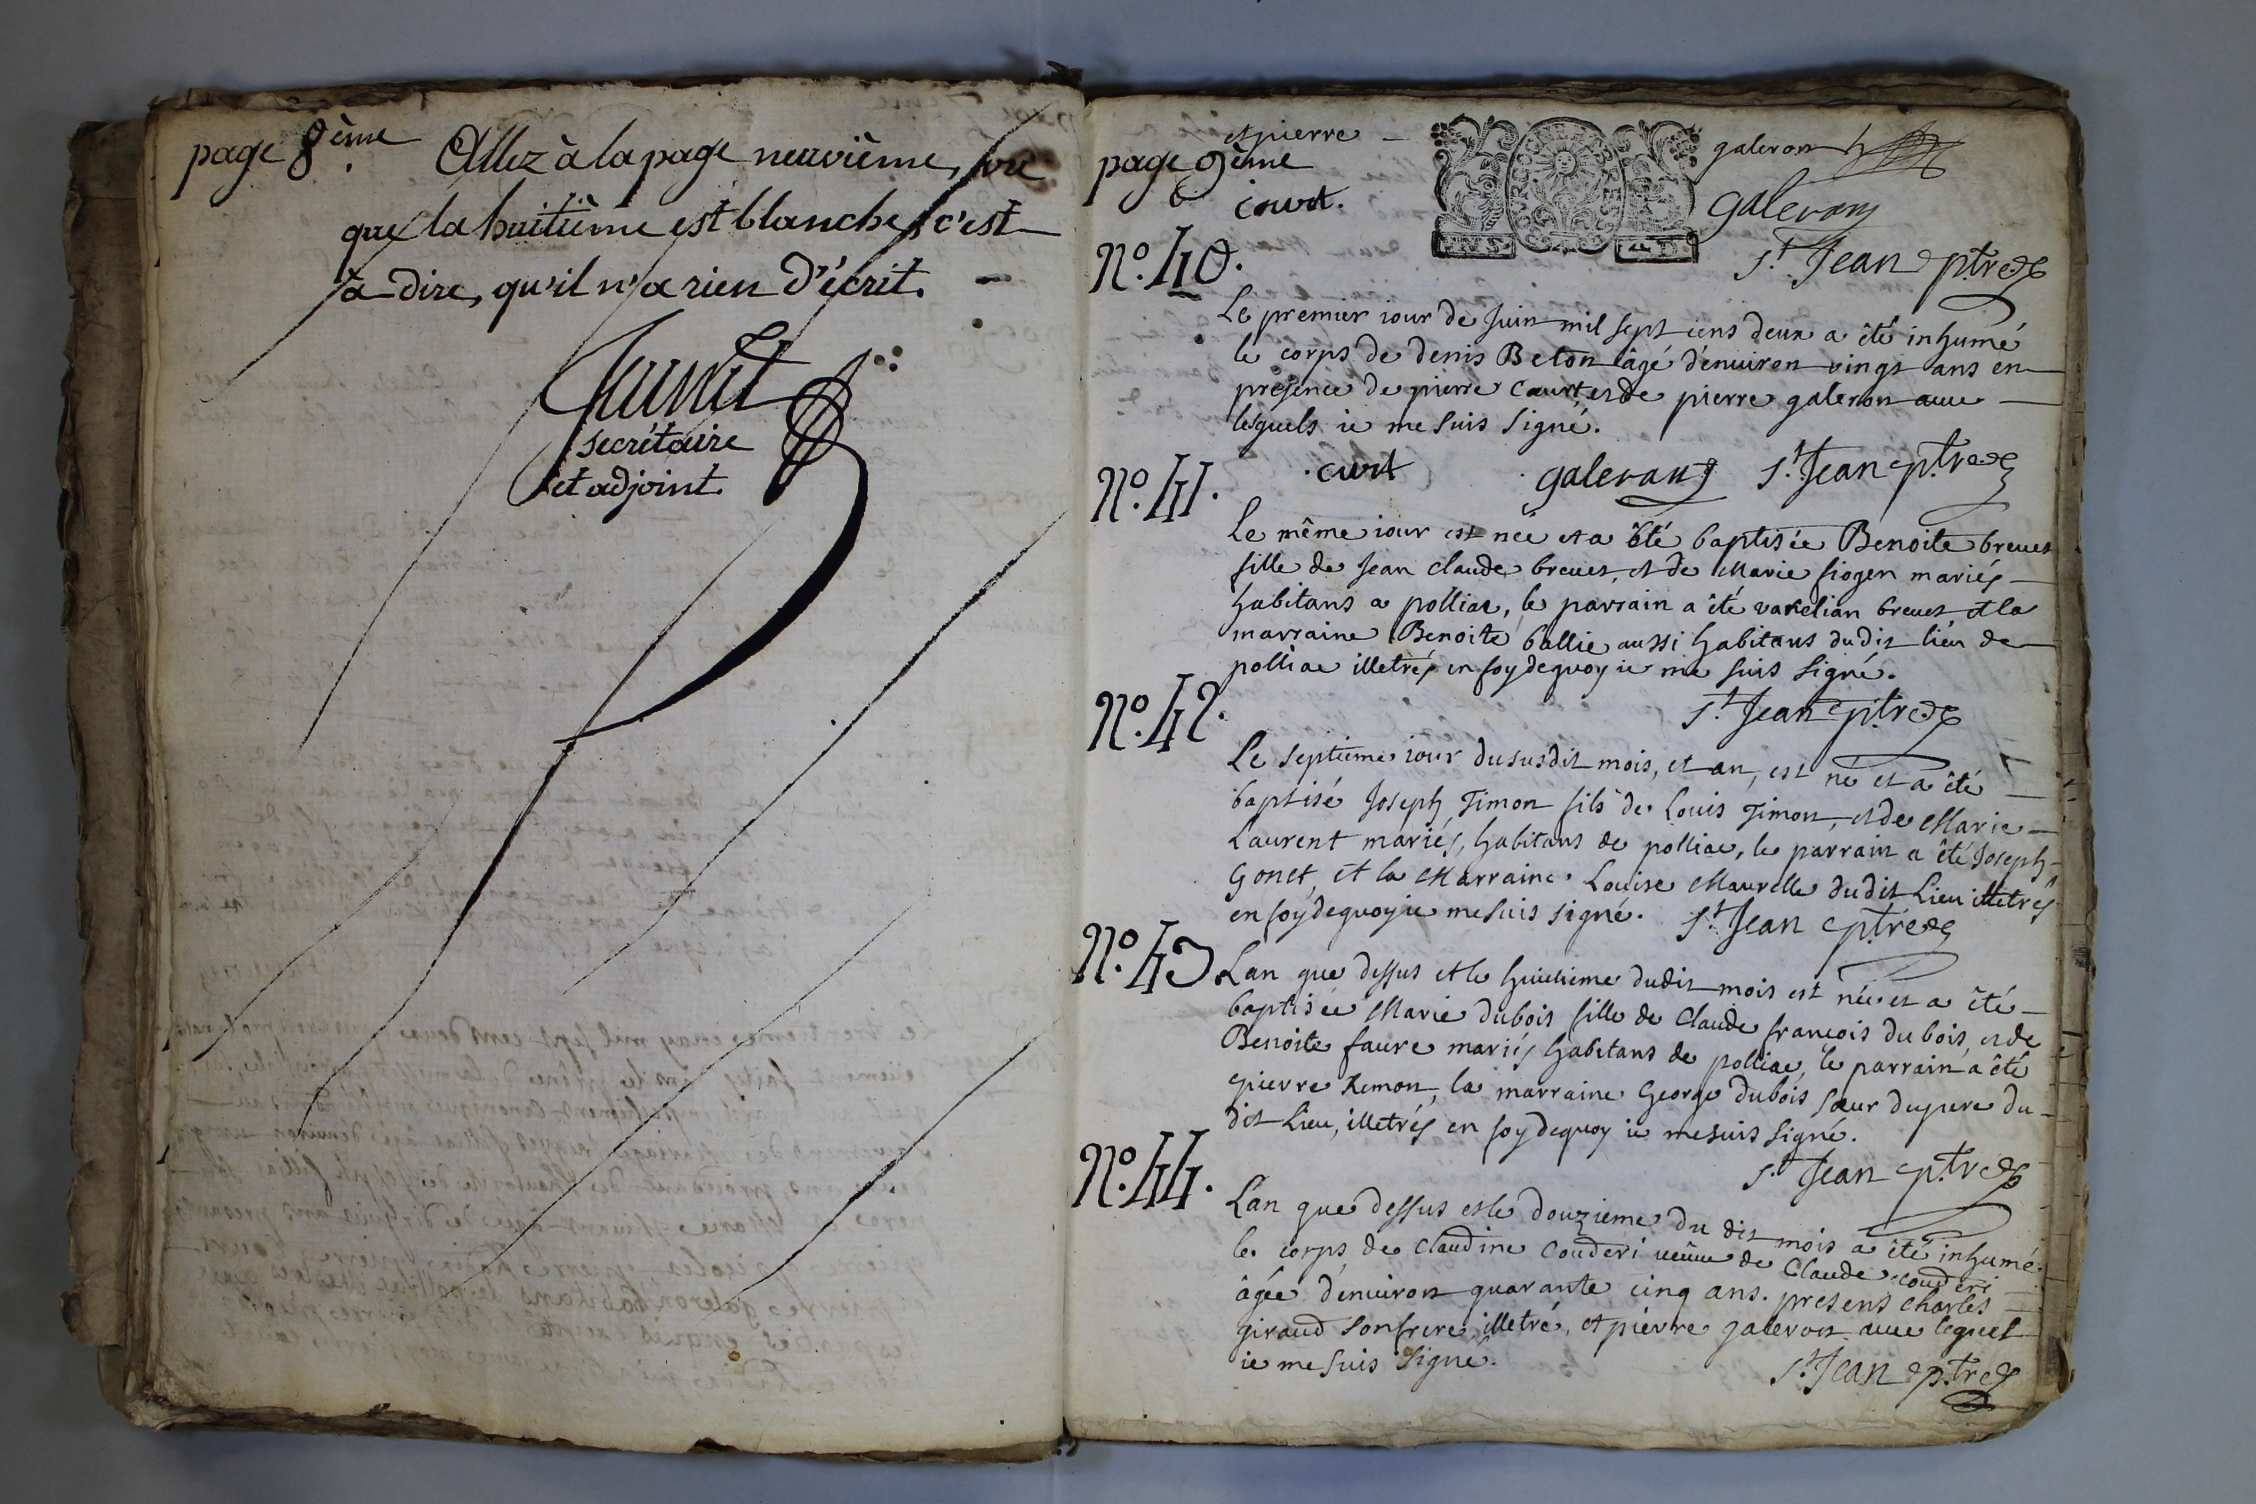 page 8ème. Allez à la page neuvième, vu
que la huitième est blanche, c'est
à dire, qu'il n'a rien d'écrit.
secrétaire
et adjoint.
et pierre
page 9ème
court.
galeron
galeron
st Jean ptre
No. 40.
Le premier iour de Juin mil sept cens deux a êté inhumé
le corps de denis Beton âgé d'enuiron vingt ans en
presence de pierre Court, et de pierre galeron auec
lesquels ie me suis signé.
curt galeron st Jean ptre
No. 41.
Le même iour est née et a êté baptisée Benoite breuet
fille de Jean claude breuet, et de Marie siogen mariés
habitans a polliac, le parrain a êté varelian breuet et la
marraine Benoite ballie aussi habitans dudit lieu de
polliac illetrés en foy dequoy ie me suis signé.
st Jean ptre
No. 42.
Le septieme iour dususdit mois, et an, est né et a êté
baptisé Joseph Timon fils de Louis Timon, et de Marie
Laurent mariés, habitans de polliac, le parrain a êté Joseph
Gonet, et la Marraine Louise Maurelle dudit Lieu illetrés
en foy dequoy ie me suis signé. st Jean ptre
No. 43
Lan que dessus et le huitieme dudit mois est née et a êté
baptisée Marie dubois fille de Claude francois dubois, et de
Benoite faure mariés habitans de polliac, le parrain a êté
pierre Remon, la marraine George dubois sœur du pere du
dit Lieu, illetrés en foy dequoy ie me suis signé.
st Jean ptre
No. 44.
Lan que dessus et le douzieme du dit mois a êté inhumé
le corps de Claudine Couderi ueuue de Claude couderi
âgée d'enuiron quarante cinq ans. presens charles
giraud son frere illetré, et pierre galeron auec lequel
ie me suis signé.
st Jean ptre